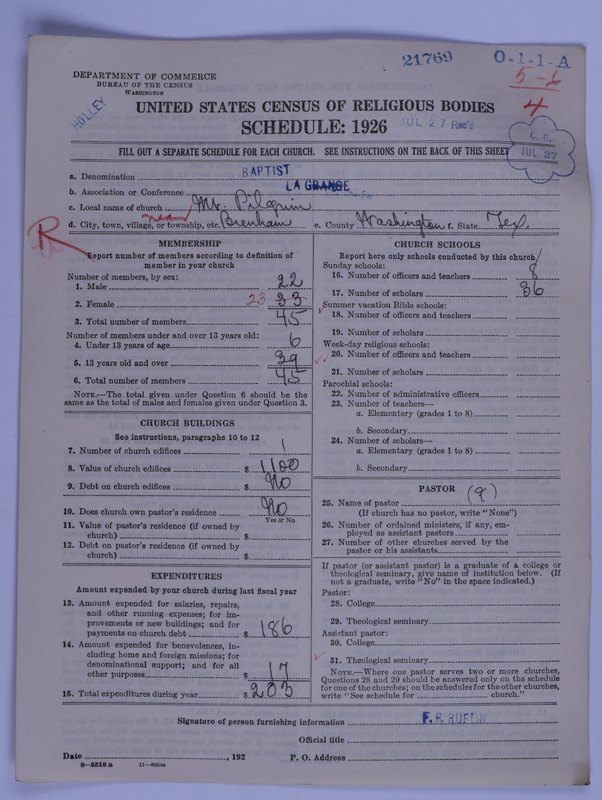 21769 O-1-1-A
5-6
4
DEPARTMENT OF COMMERCE
BUREAU OF THE CENSUS
WASHINGTON
HOLLEY
UNITED STATES CENSUS OF RELIGIOUS BODIES
SCHEDULE: 1926
JUL 27 Rec'd
C. C.
JUL 27
FILL OUT A SEPARATE SCHEDULE FOR EACH CHURCH. SEE INSTRUCTIONS ON THE BACK OF THIS SHEET
a. Denomination BAPTIST
b. Association or Conference LA GRANGE
c. Local name of church Mt. Pilgrim
near
d. City, town, village, or township, etc. Brenham e. County Washington f. State Tex.
R
MEMBERSHIP
Report number of members according to definition of
member in your church
Number of members, by sex:
1. Male 22
2. Female 23 33
3. Total number of members 45
Number of members under and over 13 years old:
4. Under 13 years of age 6
5. 13 years old and over 39
6. Total number of members 45
NOTE.—The total given under Question 6 should be the
same as the total of males and females given under Question 3.
CHURCH BUILDINGS
See instructions, paragraphs 10 to 12
7. Number of church edifices 1
8. Value of church edifices $ 1100
9. Debt on church edifices $ No
10. Does church own pastor's residence No
Yes or No
11. Value of pastor's residence (if owned by
church) $
12. Debt on pastor's residence (if owned by
church) $
EXPENDITURES
Amount expended by your church during last fiscal year
13. Amount expended for salaries, repairs,
and other running expenses; for im-
provements or new buildings; and for
payments on church debt $ 186
14. Amount expended for benevolences, in-
cluding home and foreign missions; for
denominational support; and for all
other purposes $ 17
15. Total expenditures during year $ 203
CHURCH SCHOOLS
Report here only schools conducted by this church
Sunday schools:
16. Number of officers and teachers 8
17. Number of scholars 36
Summer vacation Bible schools:
18. Number of officers and teachers
19. Number of scholars
Week-day religious schools:
20. Number of officers and teachers
21. Number of scholars
Parochial schools:
22. Number of administrative officers
23. Number of teachers—
a. Elementary (grades 1 to 8)
b. Secondary
24. Number of scholars—
a. Elementary (grades 1 to 8)
b. Secondary
PASTOR
25. Name of pastor
(If church has no pastor, write "None")
26. Number of ordained ministers, if any, em-
ployed as assistant pastors
27. Number of other churches served by the
pastor or his assistants
If pastor (or assistant pastor) is a graduate of a college or
theological seminary, give name of institution below. (If
not a graduate, write "No" in the space indicated.)
Pastor:
28. College
29. Theological seminary
Assistant pastor:
30. College
31. Theological seminary
NOTE.—Where one pastor serves two or more churches,
Questions 28 and 29 should be answered only on the schedule
for one of the churches; on the schedules for the other churches,
write "See schedule for church."
Signature of person furnishing information F. R.
Official title
Date , 192 P. O. Address
8-5518 a 11-9054a